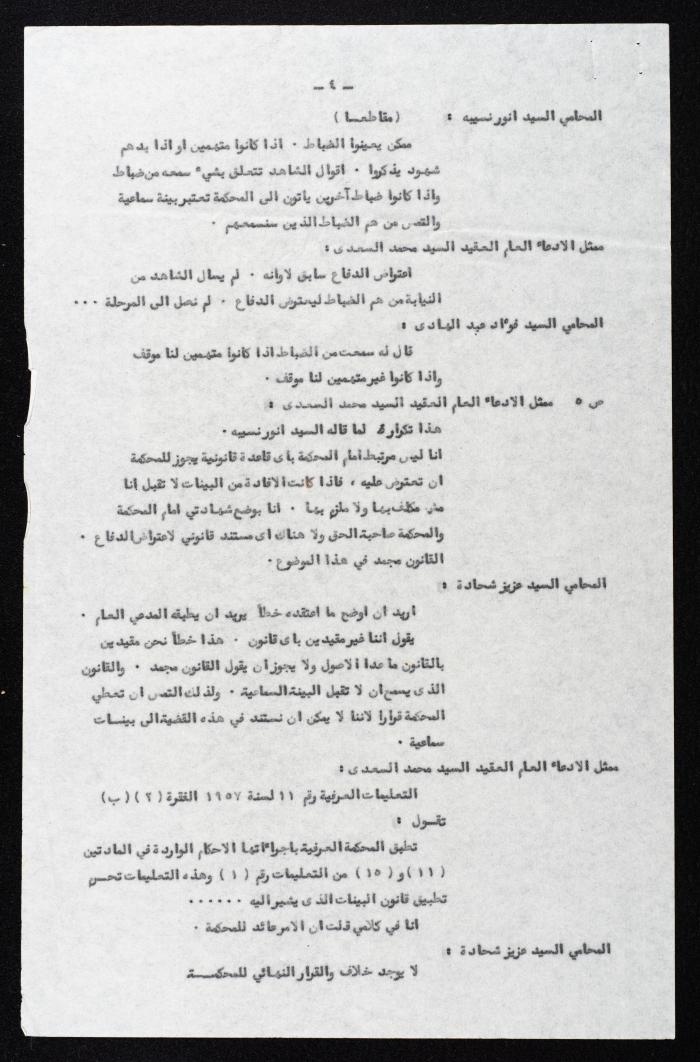 — ٤ —
المحامي السيد انور نسيبه : (مقاطعا)
ممكن يعينوا الضباط ٠ اذا كانوا متهمين او اذا بدهم
شهود يذكروا ٠ اقوال الشاهد تتعلق بشيء سمعه من ضباط
واذا كانوا ضباط آخرين ياتون الى المحكمة تعتبر بينة سماعية
والتمس من هم الضباط الذين سنسمعهم ٠
ممثل الادعاء العام العقيد السيد محمد السعدى :
اعتراض الدفاع سابق لاوانه ٠ لم يسال الشاهد من
النيابة من هم الضباط ليعترض الدفاع ٠ لم نصل الى المرحلة ٠٠٠
المحامي السيد فؤاد عبد الهادى :
قال له سمعت من الضباط اذا كانوا متهمين لنا موقف
واذا كانوا غير متهمين لنا موقف ٠
ص ٥ ممثل الادعاء العام العقيد السيد محمد السعدى :
هذا تكرار لما قاله السيد انور نسيبه ٠
انا ليس مرتبط امام المحكمة باى قاعدة قانونية يجوز للمحكمة
ان تعترض عليه ، فاذا كانت الافادة من البينات لا تقبل انا
مكلف بها ولا ملزم بها ٠ انا بوضع شهادتي امام المحكمة
والمحكمة صاحبة الحق ولا هناك اى مستند قانوني لاعتراض الدفاع ٠
القانون مجمد في هذا الموضوع ٠
المحامي السيد عزيز شحادة :
اريد ان اوضح ما اعتقده خطأ يريد ان يطبقه المدعي العام ٠
يقول اننا غير مقيدين باى قانون ٠ هذا خطأ نحن مقيدين
بالقانون ما عدا الاصول ولا يجوز ان يقول القانون مجمد ٠ والقانون
الذى يسمح ان لا تقبل البينة السماعية ٠ ولذلك التمس ان تعطي
المحكمة قرارا لاننا لا يمكن ان نستند في هذه القضية الى بينات
سماعية ٠
ممثل الادعاء العام العقيد السيد محمد السعدى :
التعليمات العرفية رقم ١١ لسنة ١٩٥٧ الفقرة (٢) (ب)
تقول :
تطبق المحكمة العرفية باجراءاتها الاحكام الواردة في المادتين
(١١) و (١٥) من التعليمات رقم (١) وهذه التعليمات تحرم
تطبيق قانون البينات الذى يشير اليه ٠٠٠٠٠٠
انا في كلامي قلت ان الامر عائد للمحكمة ٠
المحامي السيد عزيز شحادة :
لا يوجد خلاف والقرار النهائي للمحكمة